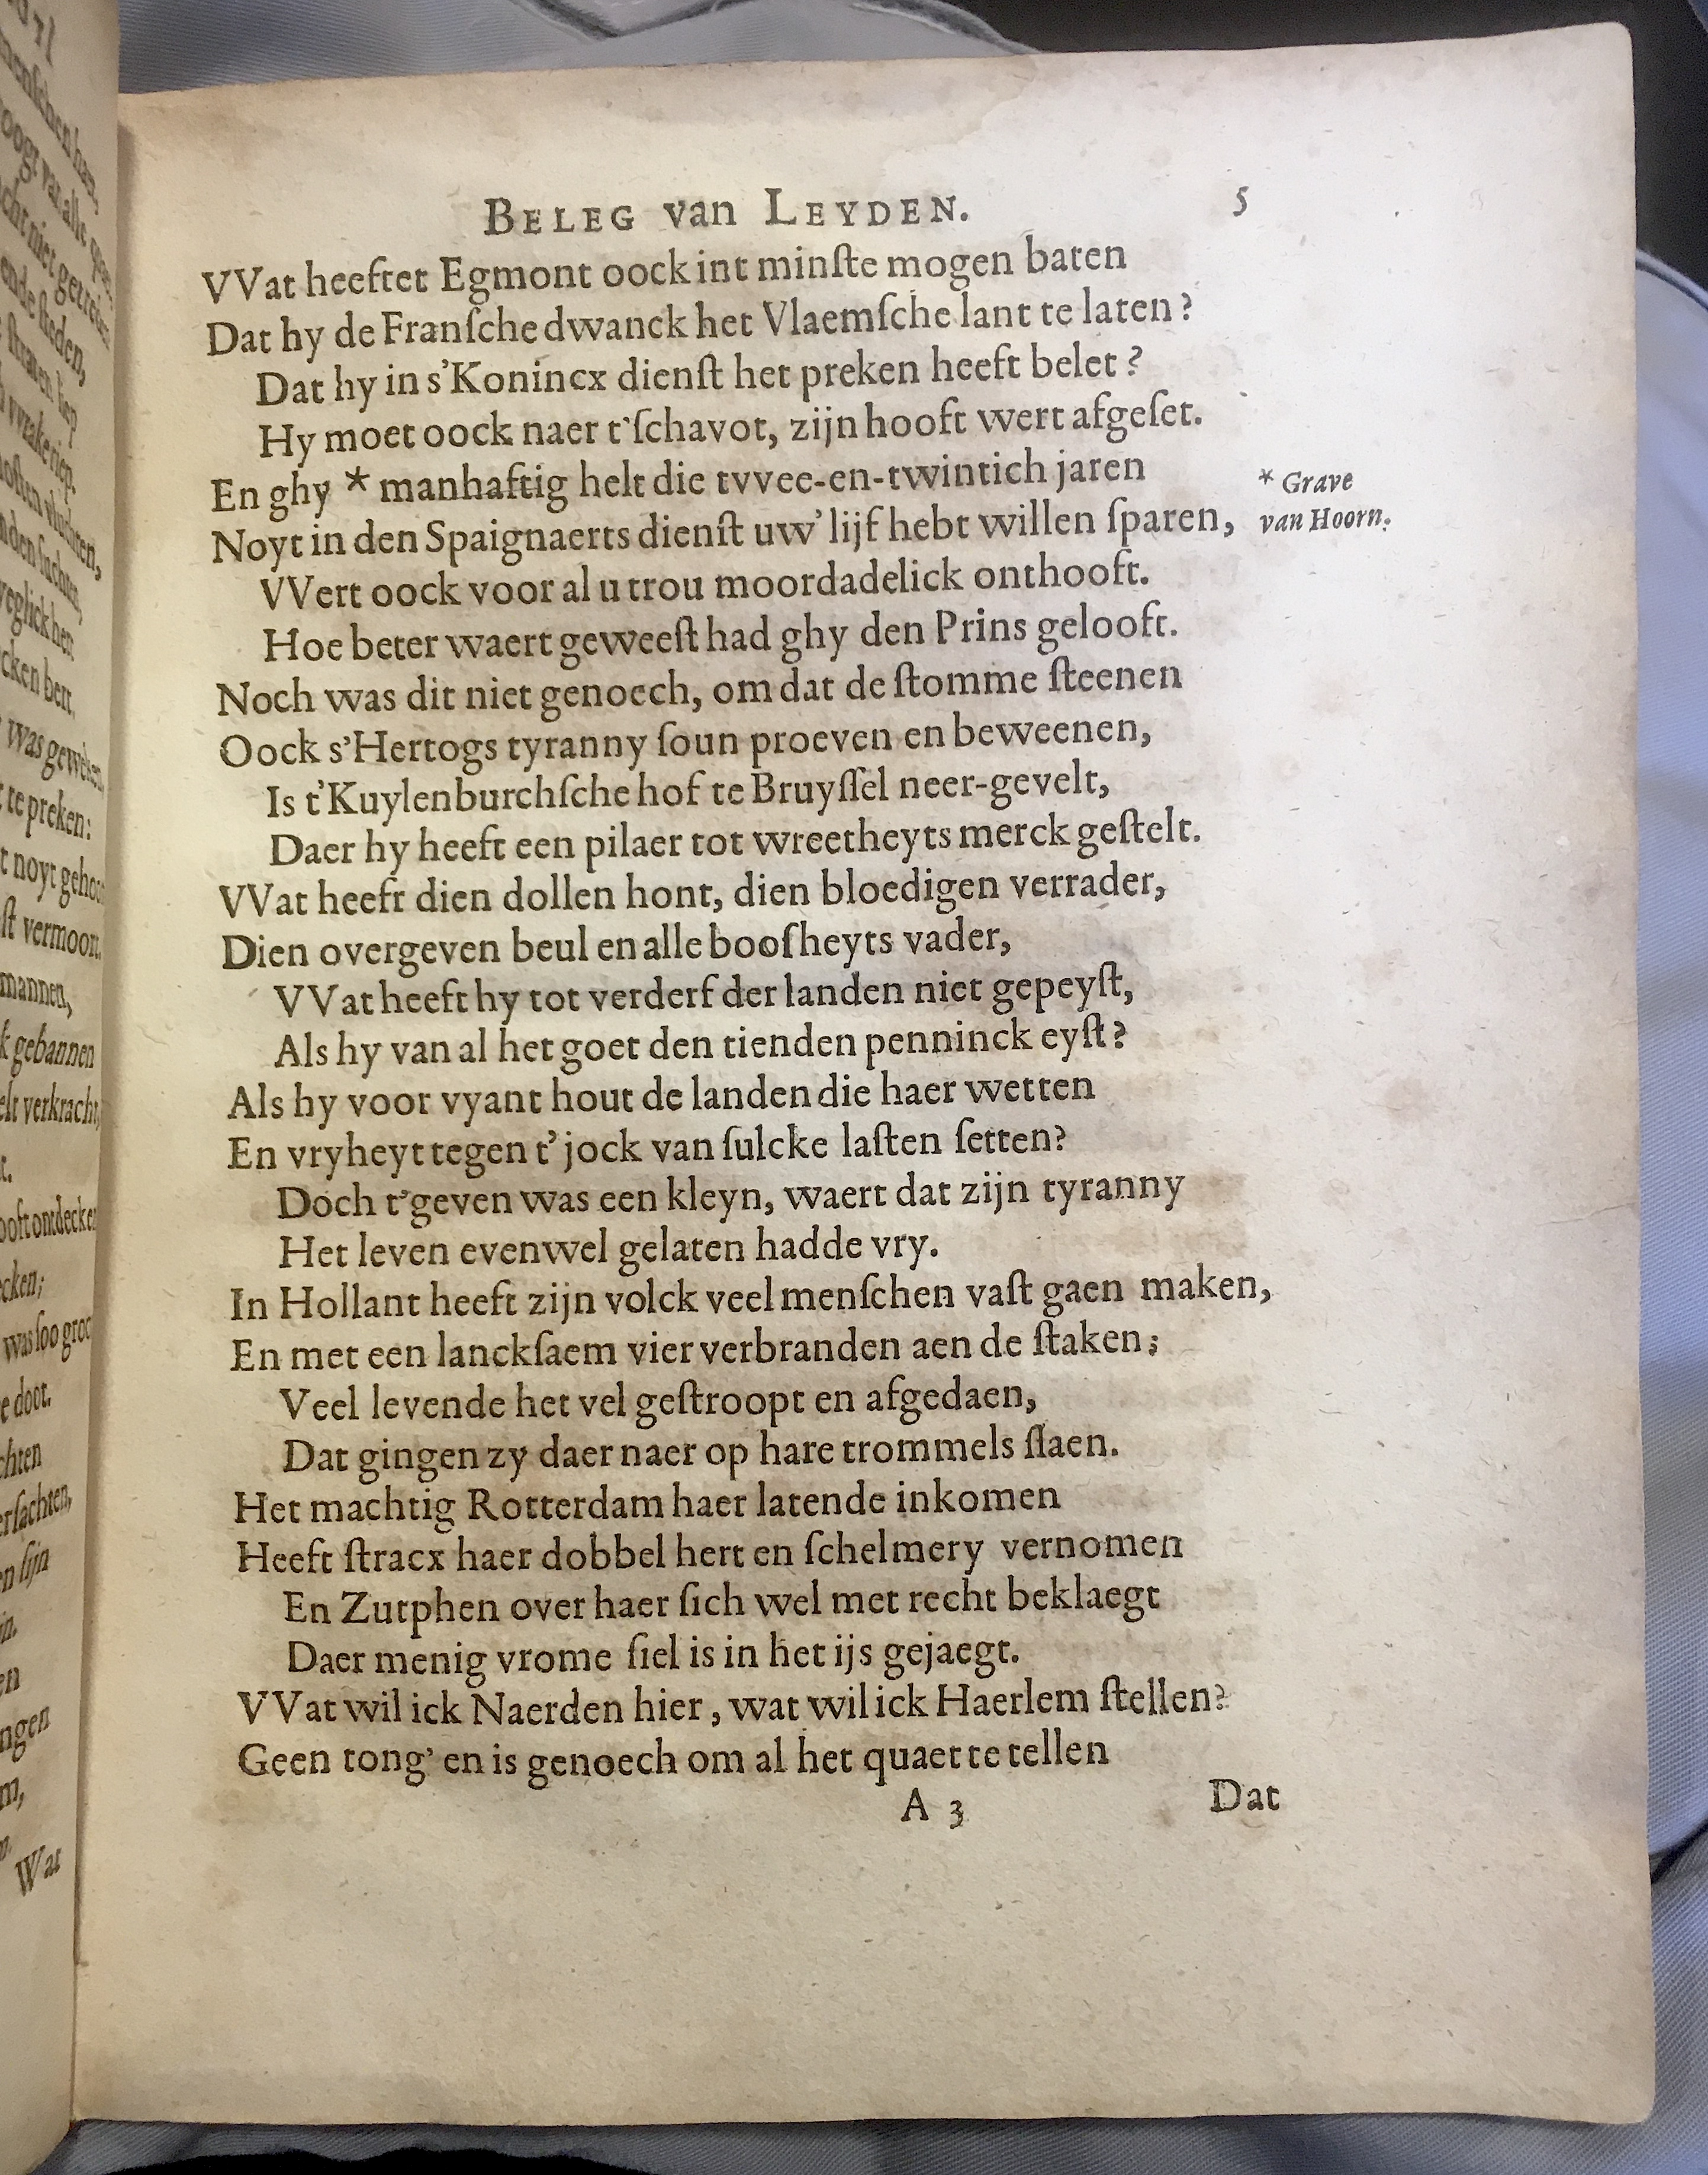 BELEG van LEYDEN. 5
VVat heeftet Egmont oock int minſte mogen baten
Dat hy de Franſche dwanck het Vlaemſche lant te laten?
Dat hy in s'Konincx dienſt het preken heeft belet?
Hy moet oock naer t'ſchavot, zijn hooft wert afgeſet.
En ghy * manhaftig helt die tvvee-en-twintich jaren
* Grave
Noyt in den Spaignaerts dienſt uw' lijf hebt willen ſparen,
van Hoorn.
VVert oock voor al u trou moordadelick onthooft.
Hoe beter waert geweeſt had ghy den Prins gelooft.
Noch was dit niet genoech, om dat de ſtomme ſteenen
Oock s'Hertogs tyranny ſoun proeven en beweenen,
Is t'Kuylenburchſche hof te Bruyſſel neer-gevelt,
Daer hy heeft een pilaer tot wreetheyts merck geſtelt.
VVat heeft dien dollen hont, dien bloedigen verrader,
Dien overgeven beul en alle booſheyts vader,
VVat heeft hy tot verderf der landen niet gepeyſt,
Als hy van al het goet den tienden penninck eyſt?
Als hy voor vyant hout de landen die haer wetten
En vryheyt tegen t' jock van ſulcke laſten ſetten?
Doch t'geven was een kleyn, waert dat zijn tyranny
Het leven evenwel gelaten hadde vry.
In Hollant heeft zijn volck veel menſchen vaſt gaen maken,
En met een lanckſaem vier verbranden aen de ſtaken;
Veel levende het vel geſtroopt en afgedaen,
Dat gingen zy daer naer op hare trommels ſlaen.
Het machtig Rotterdam haer latende inkomen
Heeft ſtracx haer dobbel hert en ſchelmery vernomen
En Zutphen over haer ſich wel met recht beklaegt
Daer menig vrome ſiel is in het ijs gejaegt.
VVat wil ick Naerden hier, wat wil ick Haerlem ſtellen?
Geen tong' en is genoech om al het quaet te tellen
A 3 Dat